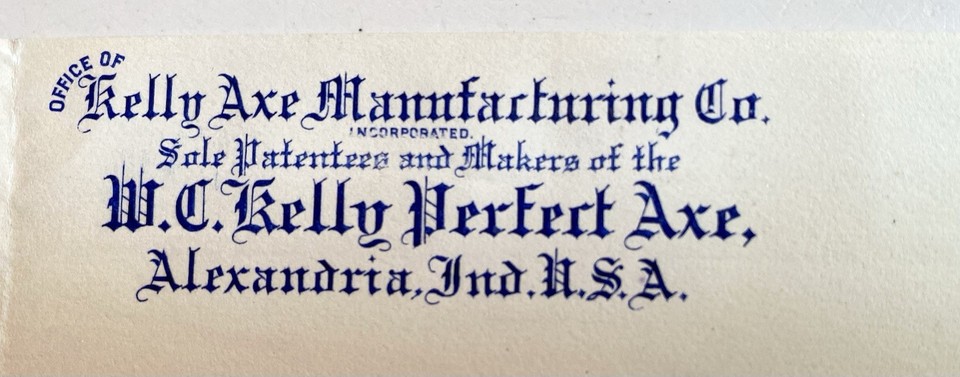 OFFICE OF
Kelly Axe Manufacturing Co.
INCORPORATED.
Sole Patentees and Makers of the
W.C. Kelly Perfect Axe,
Alexandria, Ind. U.S.A.